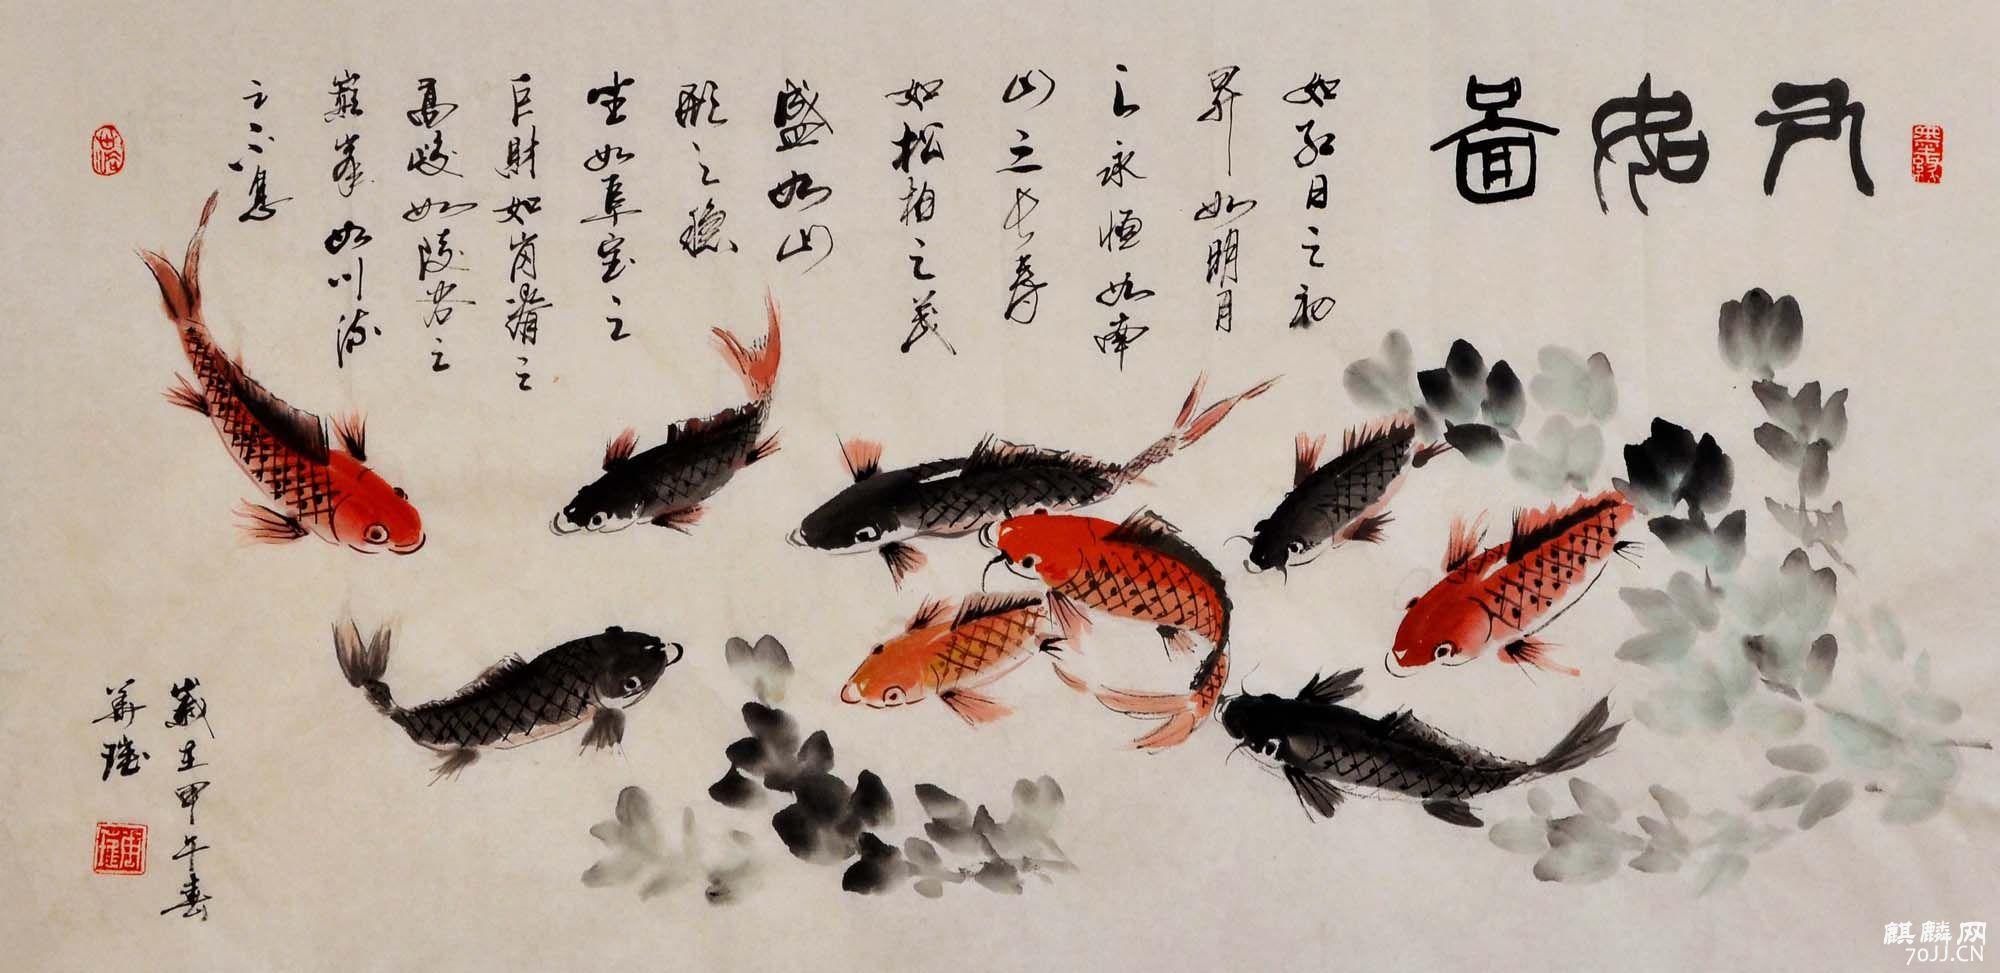 九如图
如红日之初
昇如明月
之永恒如南
山之长寿
如松柏之茂
盛如山
形之稳
坐如阜宝之
巨财如岗脊之
高峻如陵谷之
巅峯如川流
之不息
岁在甲午春
华璇
麒麟网
70JJ.CN